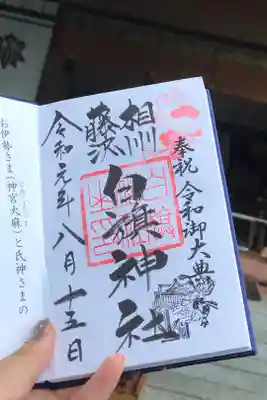 奉祝 令和御大典
相州
藤沢
白旗神社
令和元年八月十五日
お伊勢さま(神宮大麻)と氏神さまの